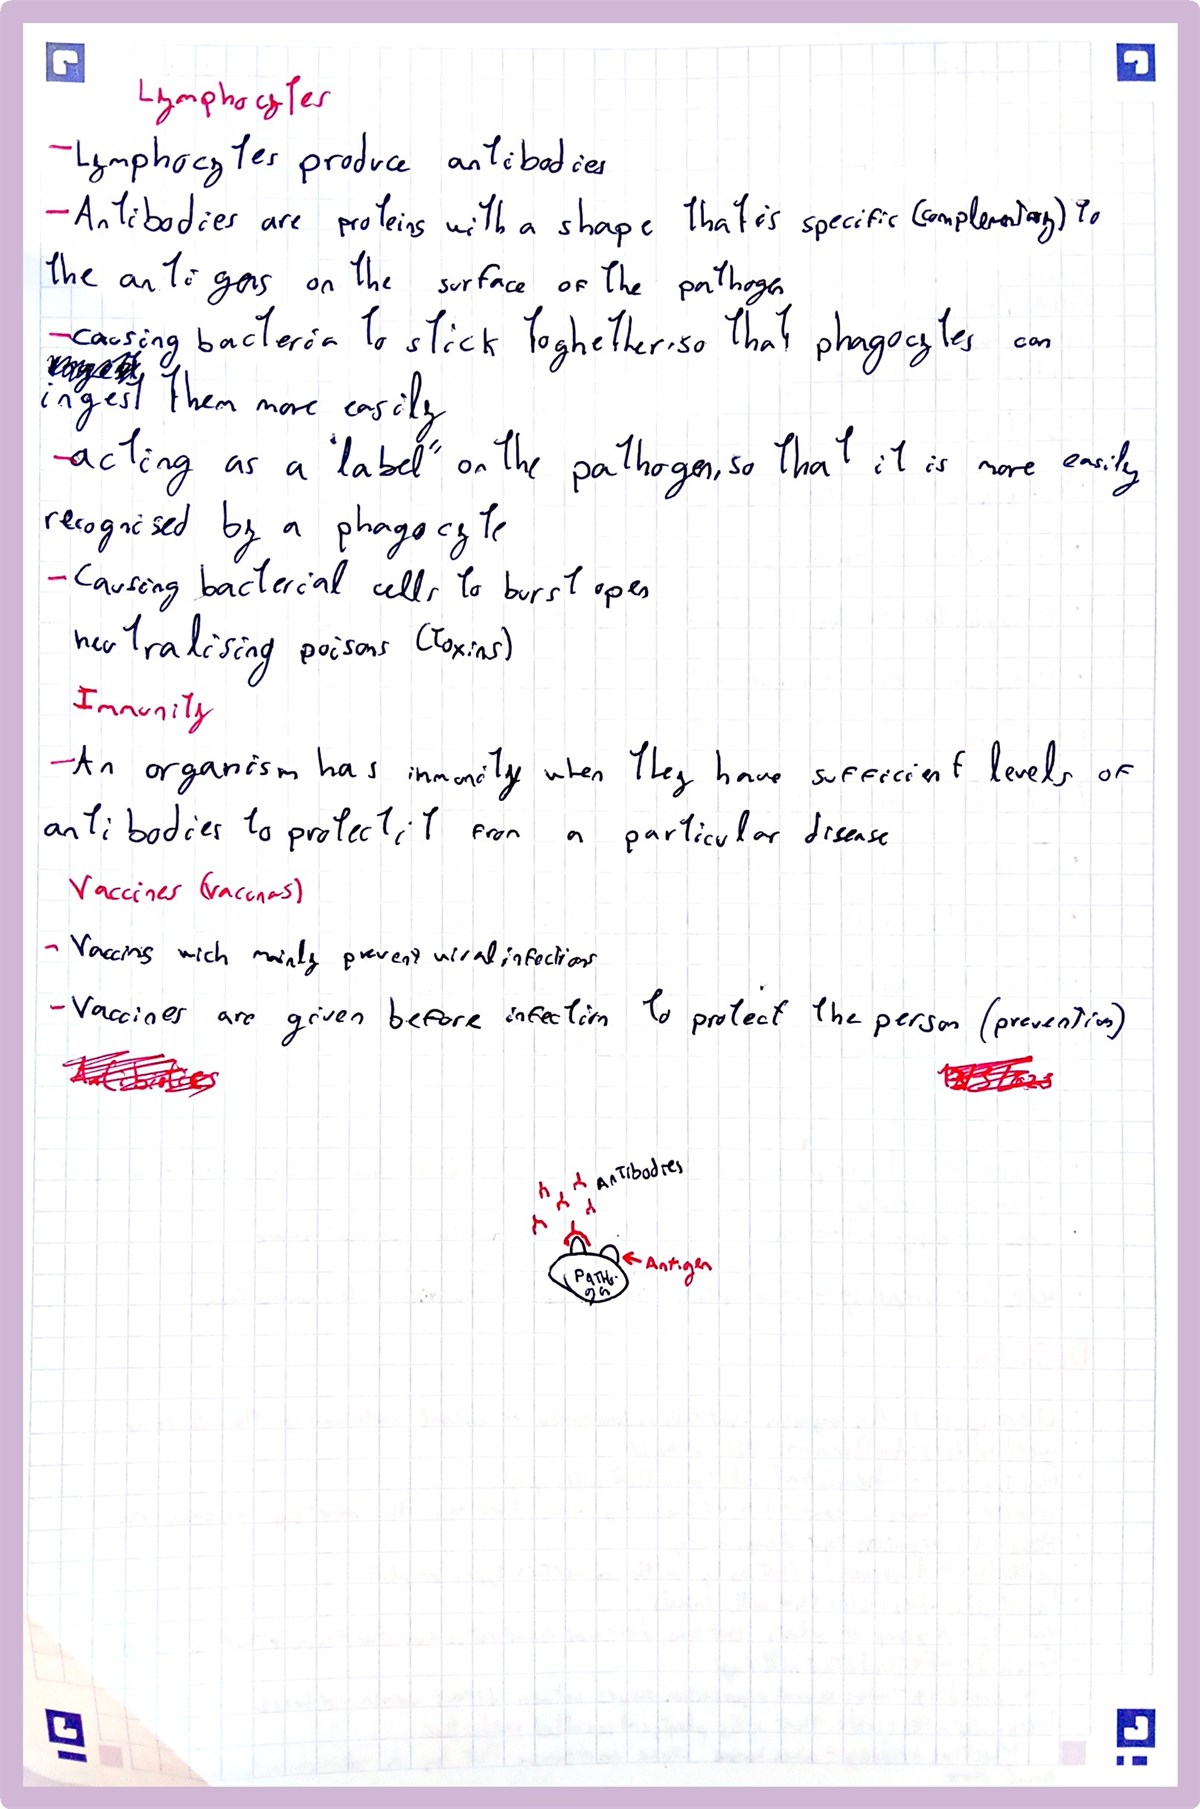 Lymphocytes
-Lymphocytes produce antibodies
-Antibodies are proteins with a shape that is specific (complementary) to
the antigens on the surface of the pathogen
-causing bacteria to stick toghether,so that phagocytes can
ingest them more easily
-acting as a "label" on the pathogen, so that it is more easily
recognised by a phagocyte
-Causing bacterial cells to burst open
neutralising poisons (toxins)
Immunity
-An organism has immunity when they have sufficient levels of
antibodies to protect it from a particular disease
Vaccines (vacunas)
- Vaccins wich mainly prevent viral infections
- Vaccines are given before infection to protect the person (prevention)
Antibodies
Antigen
Pathogen